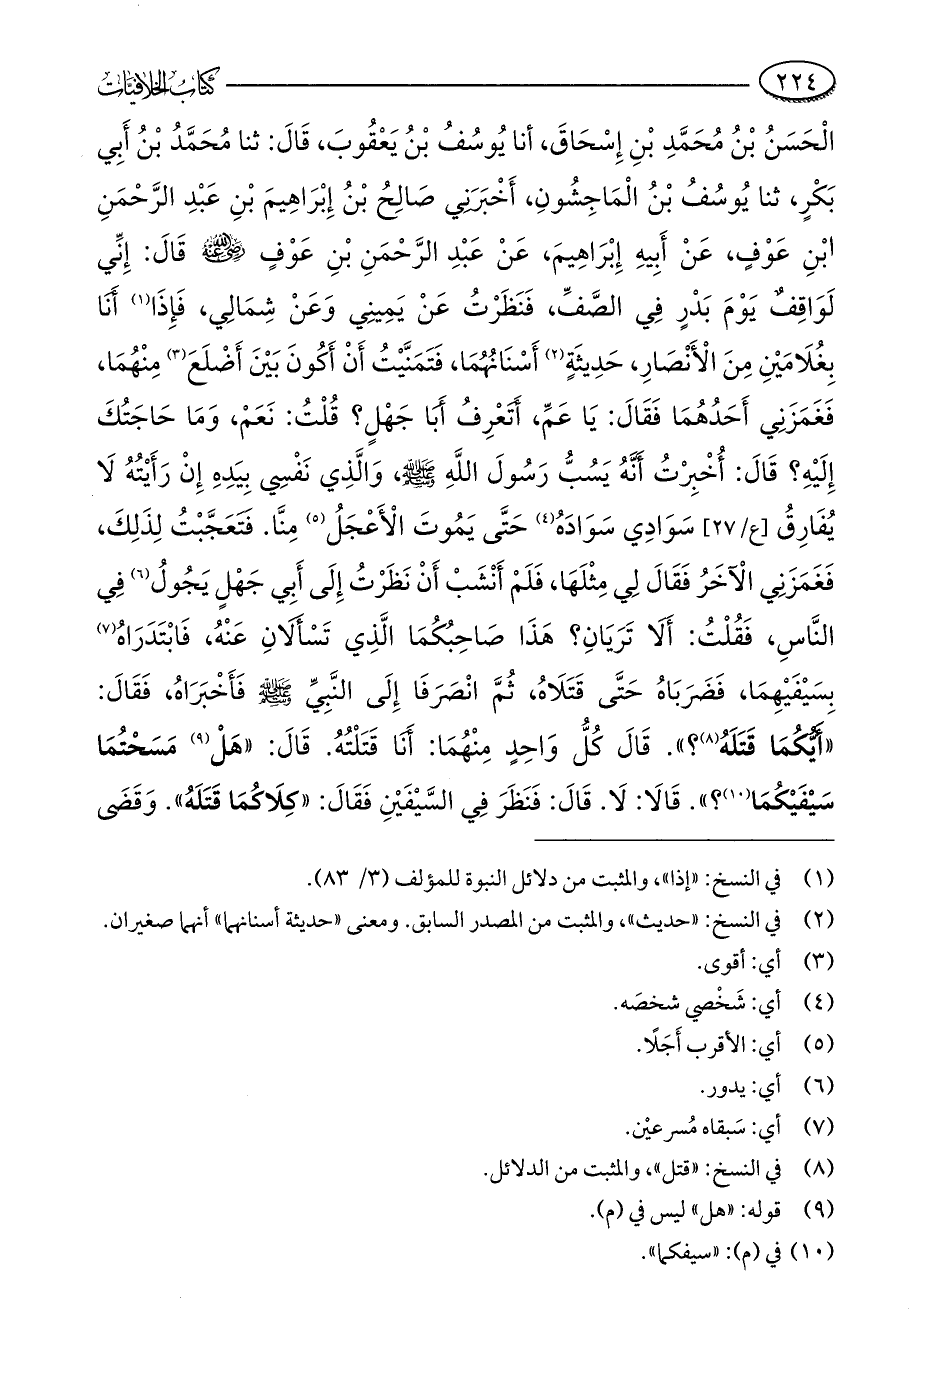 ٢٢٤ كتاب الخلافيات
الْحَسَنُ بْنُ مُحَمَّدِ بْنِ إِسْحَاقَ، أنا يُوسُفُ بْنُ يَعْقُوبَ، قَالَ: ثنا مُحَمَّدُ بْنُ أَبِي
بَكْرٍ، ثنا يُوسُفُ بْنُ الْمَاجِشُونِ، أَخْبَرَنِي صَالِحُ بْنُ إِبْرَاهِيمَ بْنِ عَبْدِ الرَّحْمَنِ
ابْنِ عَوْفٍ، عَنْ أَبِيهِ إِبْرَاهِيمَ، عَنْ عَبْدِ الرَّحْمَنِ بْنِ عَوْفٍ رضي الله عنه قَالَ: إِنِّي
لَوَاقِفٌ يَوْمَ بَدْرٍ فِي الصَّفِّ، فَنَظَرْتُ عَنْ يَمِينِي وَعَنْ شِمَالِي، فَإِذَا(١) أَنَا
بِغُلَامَيْنِ مِنَ الْأَنْصَارِ، حَدِيثَةٍ(٢) أَسْنَانُهُمَا، فَتَمَنَّيْتُ أَنْ أَكُونَ بَيْنَ أَضْلَعَ(٣) مِنْهُمَا،
فَغَمَزَنِي أَحَدُهُمَا فَقَالَ: يَا عَمِّ، أَتَعْرِفُ أَبَا جَهْلٍ؟ قُلْتُ: نَعَمْ، وَمَا حَاجَتُكَ
إِلَيْهِ؟ قَالَ: أُخْبِرْتُ أَنَّهُ يَسُبُّ رَسُولَ اللَّهِ ﷺ، وَالَّذِي نَفْسِي بِيَدِهِ إِنْ رَأَيْتُهُ لَا
يُفَارِقُ [ع/٢٧] سَوَادِي سَوَادَهُ(٤) حَتَّى يَمُوتَ الْأَعْجَلُ(٥) مِنَّا. فَتَعَجَّبْتُ لِذَلِكَ،
فَغَمَزَنِي الْآخَرُ فَقَالَ لِي مِثْلَهَا، فَلَمْ أَنْشَبْ أَنْ نَظَرْتُ إِلَى أَبِي جَهْلٍ يَجُولُ(٦) فِي
النَّاسِ، فَقُلْتُ: أَلَا تَرَيَانِ؟ هَذَا صَاحِبُكُمَا الَّذِي تَسْأَلَانِ عَنْهُ، فَابْتَدَرَاهُ(٧)
بِسَيْفَيْهِمَا، فَضَرَبَاهُ حَتَّى قَتَلَاهُ، ثُمَّ انْصَرَفَا إِلَى النَّبِيِّ ﷺ فَأَخْبَرَاهُ، فَقَالَ:
«أَيُّكُمَا قَتَلَهُ(٨)؟». قَالَ كُلُّ وَاحِدٍ مِنْهُمَا: أَنَا قَتَلْتُهُ. قَالَ: «هَلْ(٩) مَسَحْتُمَا
سَيْفَيْكُمَا(١٠)؟». قَالَا: لَا. قَالَ: فَنَظَرَ فِي السَّيْفَيْنِ فَقَالَ: «كِلَاكُمَا قَتَلَهُ». وَقَضَى
(١) في النسخ: «إذا»، والمثبت من دلائل النبوة للمؤلف (٣/ ٨٣).
(٢) في النسخ: «حديث»، والمثبت من المصدر السابق. ومعنى «حديثة أسنانهما» أنهما صغيران.
(٣) أي: أقوى.
(٤) أي: شَخْصي شخصَه.
(٥) أي: الأقرب أَجَلًا.
(٦) أي: يدور.
(٧) أي: سَبقاه مُسرعيْن.
(٨) في النسخ: «قتل»، والمثبت من الدلائل.
(٩) قوله: «هل» ليس في (م).
(١٠) في (م): «سيفكما».